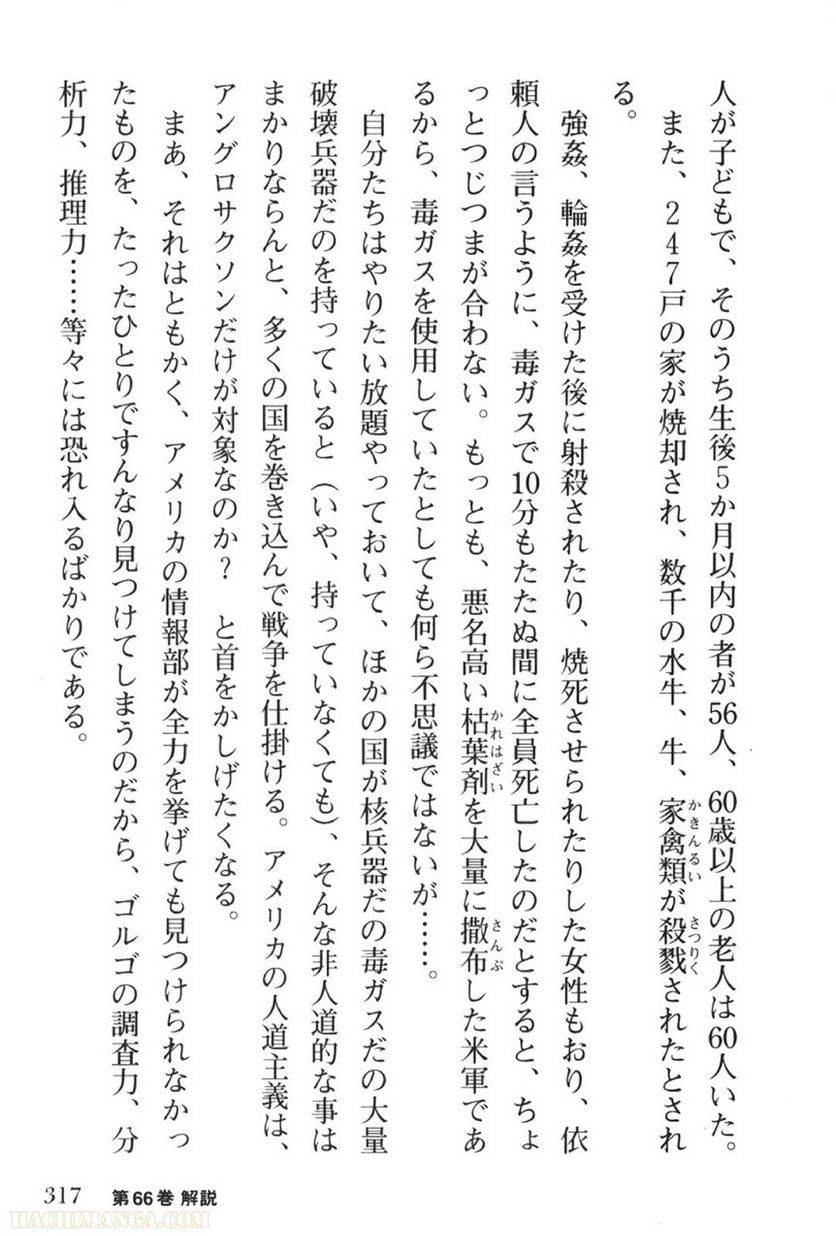 人が子どもで、そのうち生後5か月以内の者が56人、60歳以上の老人は60人いた。
また、247戸の家が焼却され、数千の水牛、牛、家禽類が殺戮されたとされ
る。
強姦、輪姦を受けた後に射殺されたり、焼死させられたりした女性もおり、依
頼人の言うように、毒ガスで10分もたたぬ間に全員死亡したのだとすると、ちょ
っとつじつまが合わない。もっとも、悪名高い枯葉剤を大量に撒布した米軍であ
るから、毒ガスを使用していたとしても何ら不思議ではないが……。
自分たちはやりたい放題やっておいて、ほかの国が核兵器だの毒ガスだの大量
破壊兵器だのを持っていると（いや、持っていなくても）、そんな非人道的な事は
まかりならんと、多くの国を巻き込んで戦争を仕掛ける。アメリカの人道主義は、
アングロサクソンだけが対象なのか？　と首をかしげたくなる。
まあ、それはともかく、アメリカの情報部が全力を挙げても見つけられなかっ
たものを、たったひとりですんなり見つけてしまうのだから、ゴルゴの調査力、分
析力、推理力……等々には恐れ入るばかりである。
かきんるい
さつりく
かれはざい
さんぷ
317 第66巻 解説
HACHIMANGA.COM